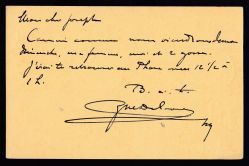 Mon cher Joseph
Comme convenu nous viendrons
Dimanche, ma femme, moi et 2 gosses.
J'irai te retrouver au Phare vers 12 1/2 à
1 h.
B. à t.